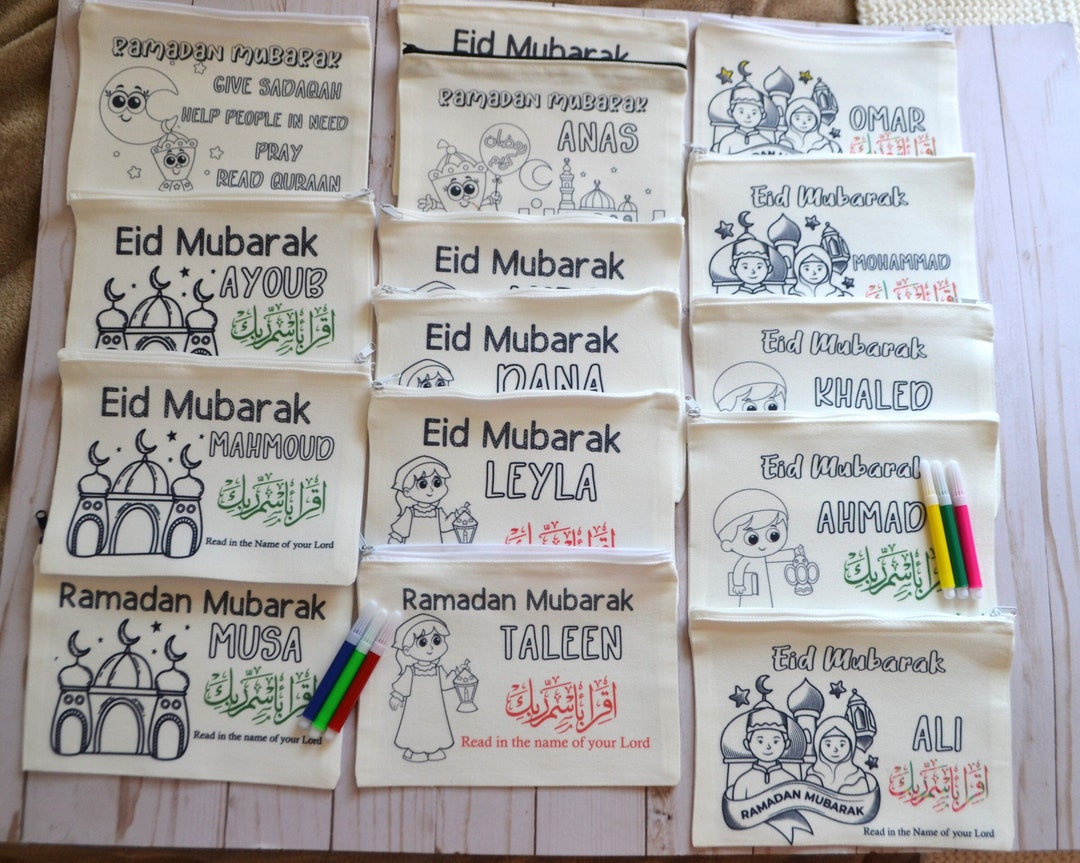 RAMADAN MUBARAK
GIVE SADAQAH
HELP PEOPLE IN NEED
PRAY
READ QURAAN
Eid Mubarak
AYOUB
اقرأ باسم ربك
Eid Mubarak
MAHMOUD
اقرأ باسم ربك
Read in the Name of your Lord
Ramadan Mubarak
MUSA
اقرأ باسم ربك
Read in the name of your Lord
Eid Mubarak
RAMADAN MUBARAK
ANAS
رمضان كريم
Eid Mubarak
Eid Mubarak
DANA
Eid Mubarak
LEYLA
اقرأ باسم ربك
Ramadan Mubarak
TALEEN
اقرأ باسم ربك
Read in the name of your Lord
OMAR
اقرأ باسم ربك
Eid Mubarak
MOHAMMAD
اقرأ باسم ربك
Eid Mubarak
KHALED
Eid Mubarak
AHMAD
اقرأ باسم ربك
Eid Mubarak
ALI
اقرأ باسم ربك
RAMADAN MUBARAK
Read in the Name of your Lord